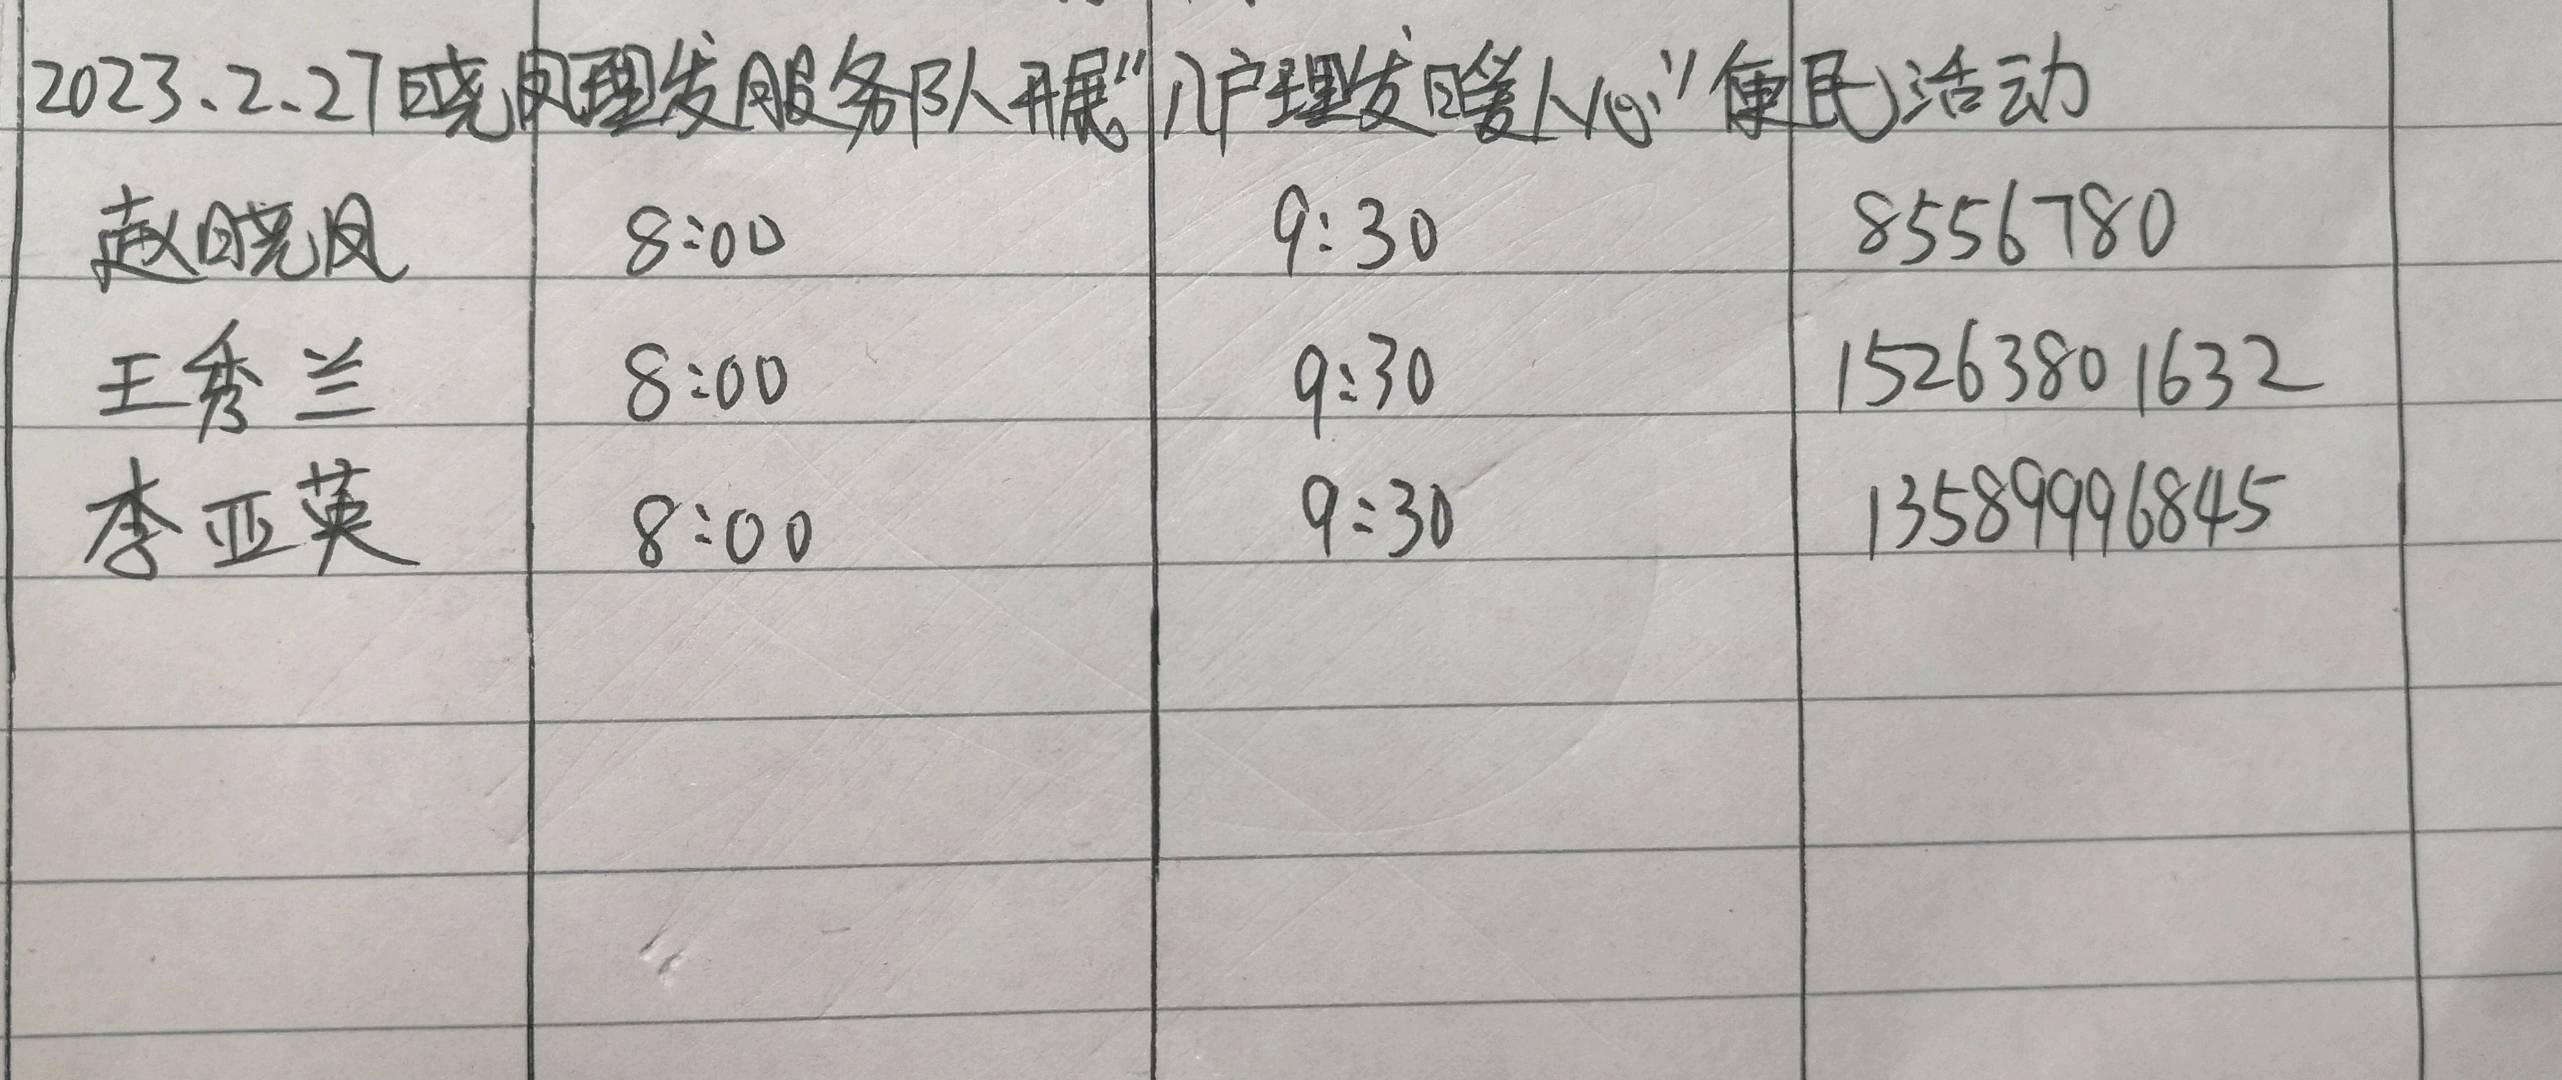 2023.2.27晓凤理发服务队开展"入户理发暖人心"便民活动
赵晓凤 8:00 9:30 8556780
王秀兰 8:00 9:30 15263801632
李亚英 8:00 9:30 13589996845